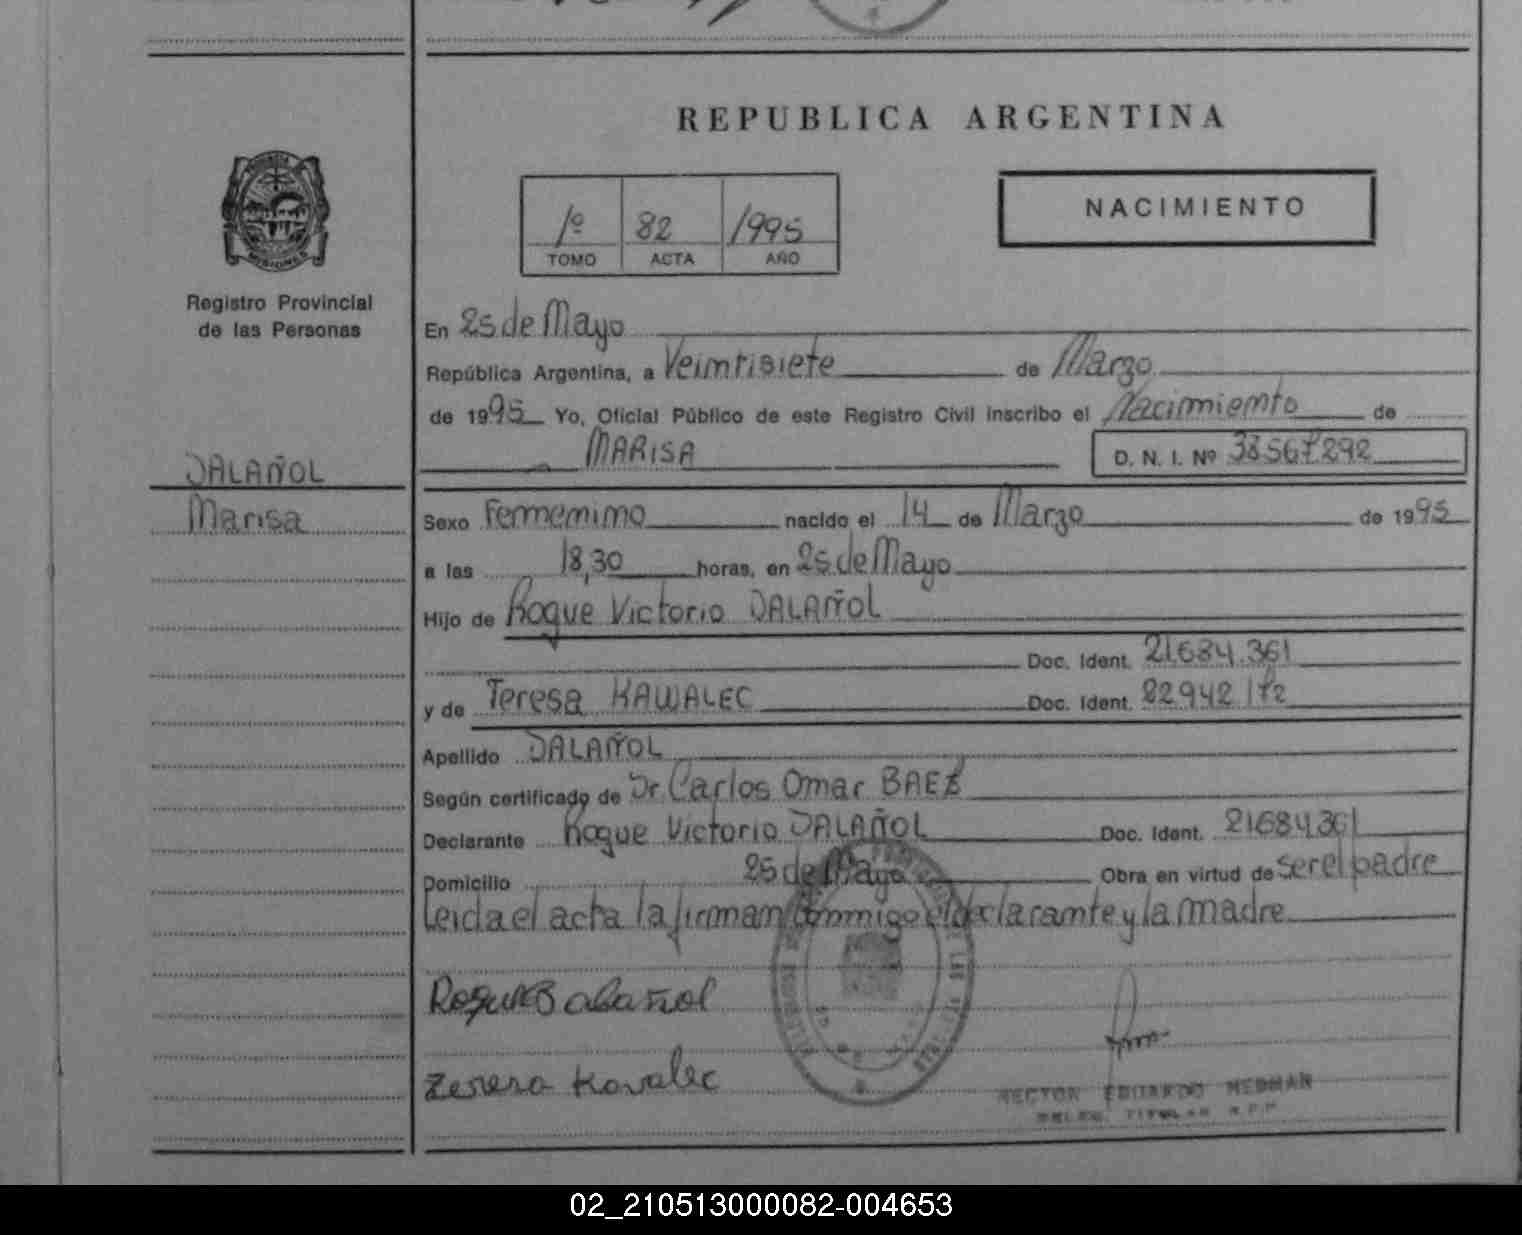 REPUBLICA ARGENTINA
NACIMIENTO
1º 82 1995
TOMO ACTA AÑO
MISIONES
Registro Provincial
de las Personas
En 25 de Mayo
República Argentina, a Veintisiete de Marzo
de 1995 Yo, Oficial Público de este Registro Civil inscribo el Nacimiento de
MARISA D. N. I. Nº 38567292
DALAÑOL
Marisa
Sexo Femenino nacido el 14 de Marzo de 1995
a las 18,30 horas, en 25 de Mayo
Hijo de Roque Victorio DALAÑOL
Doc. Ident. 21684.361
y de Teresa KAWALEC Doc. Ident. 22942172
Apellido DALAÑOL
Según certificado de Dr. Carlos Omar BAEZ
Declarante Roque Victorio DALAÑOL Doc. Ident. 21684361
Domicilio 25 de Mayo Obra en virtud de ser el padre
Leida el acta la firman conmigo el declarante y la madre
Roque Balañol
Teresa Kovalec
HECTOR EDUARDO HEDMAN
TITULAR R.P.P.
02_210513000082-004653